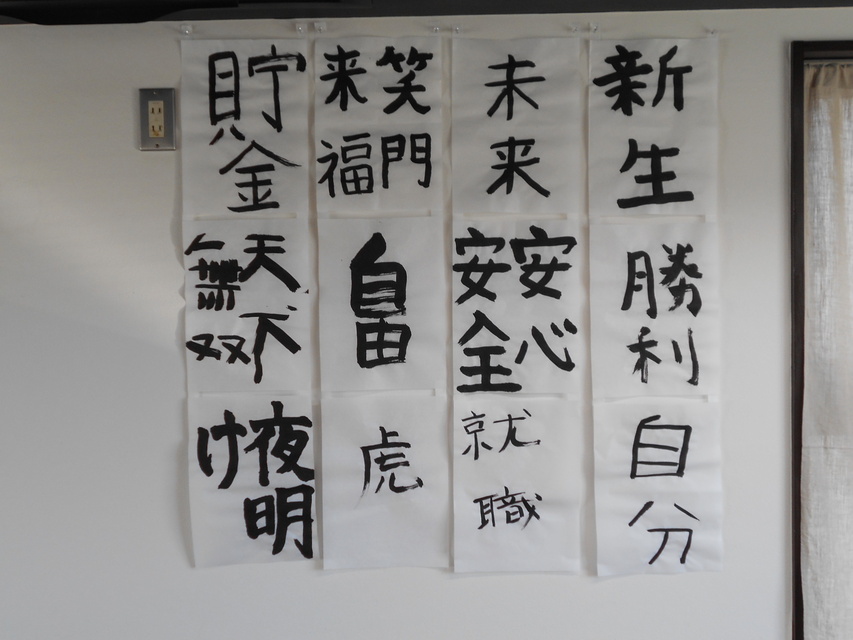 新生
勝利
自分
未来
安心
安全
就職
笑門
来福
自由
虎
貯金
天下
無双
夜明
け